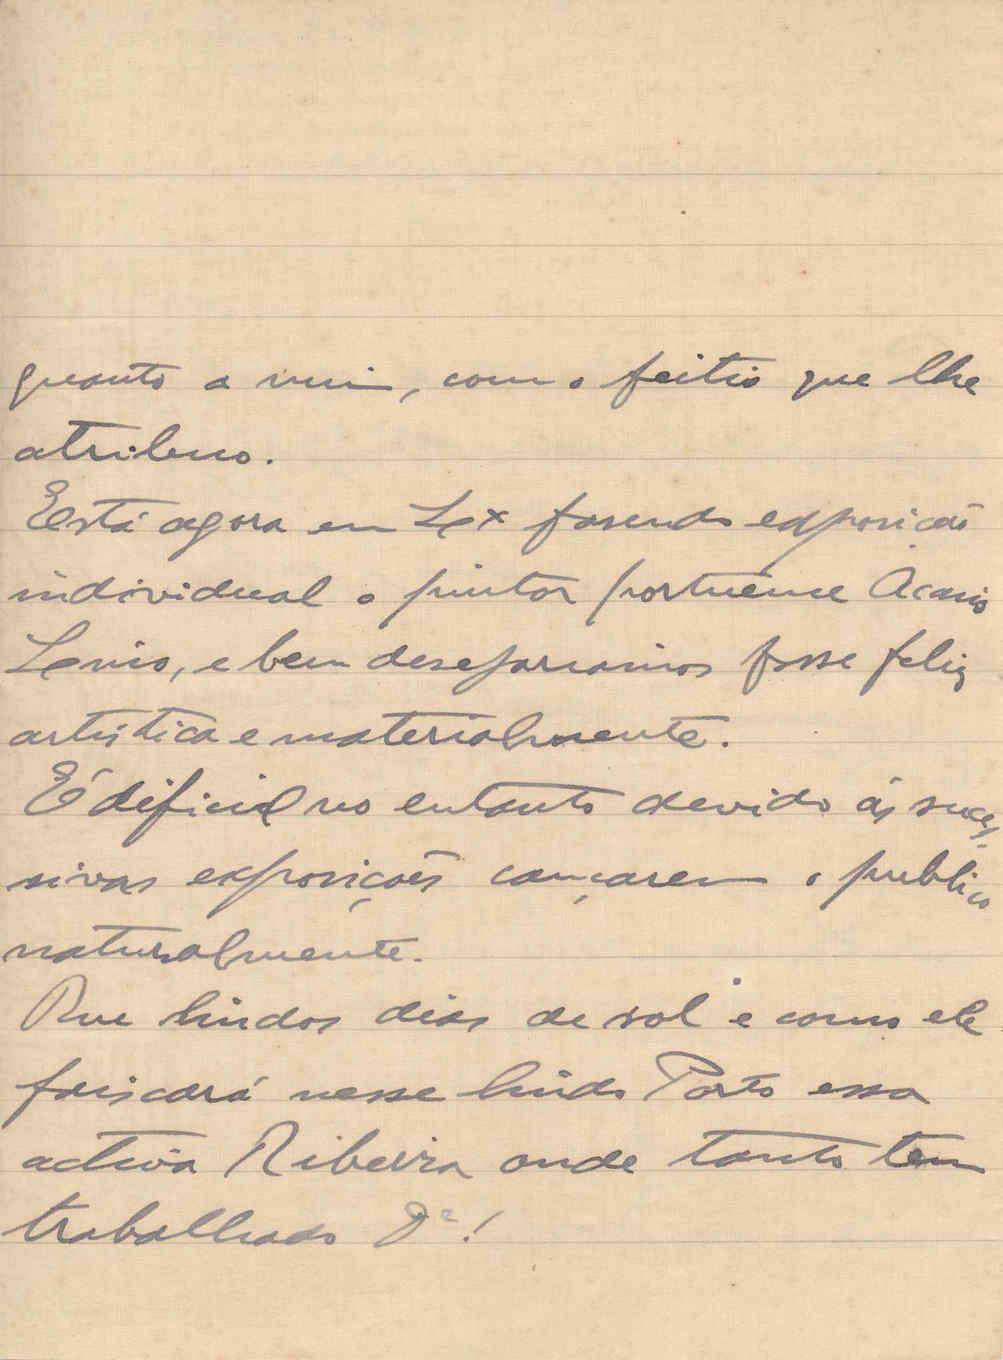 quanto a mim, com o feitio que lhe
atribuo.
Está agora em Lx fasendo exposição
individual o pintor portuense Acacio
Lino, e bem desejariamos fosse feliz
artistica e materialmente.
É dificil no entanto devido ás suces-
sivas exposições cançarem o publico
naturalmente.
Que lindos dias de sol e como ele
faiscará nesse lindo Porto essa
activa Ribeira onde tanto tem
trabalhado !